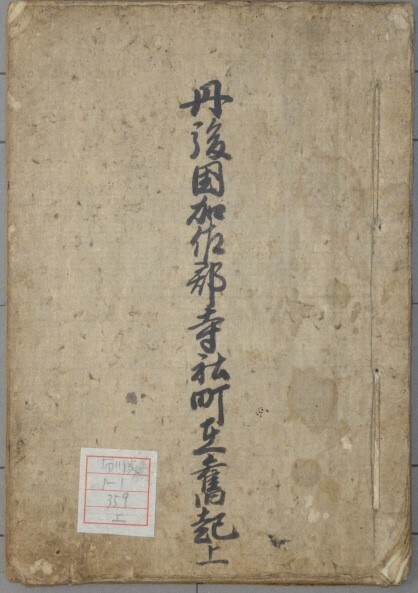 丹後国加佐郡寺社町在舊起上
1-1
359
上